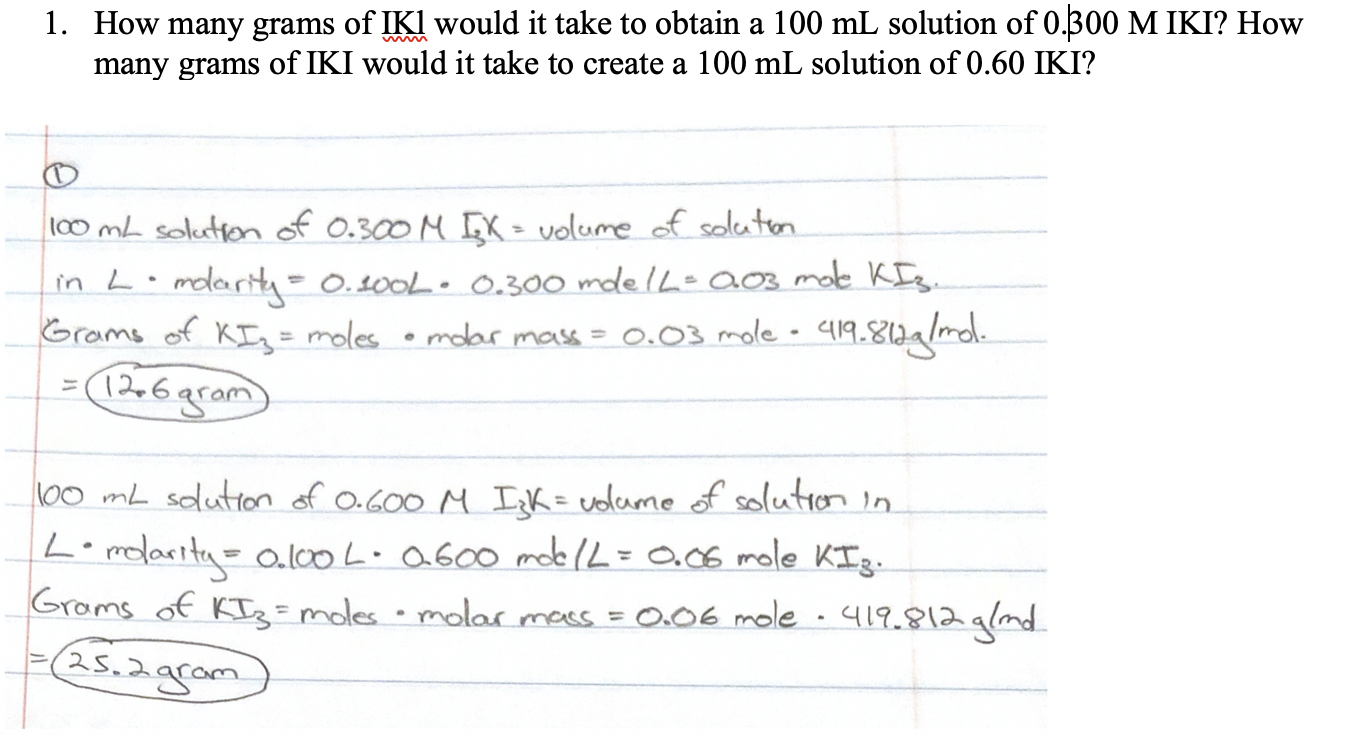 1. How many grams of IK1 would it take to obtain a 100 mL solution of 0.300 M IKI? How
many grams of IKI would it take to create a 100 mL solution of 0.60 IKI?
①
100 mL solution of 0.300 M I₃K = volume of solution
in L • molarity = 0.100L • 0.300 mole/L = 0.03 mole KI₃.
Grams of KI₃ = moles • molar mass = 0.03 mole • 419.812g/mol.
= 12.6 gram
100 mL solution of 0.600 M I₃K = volume of solution in
L • molarity = 0.100 L • 0.600 mole/L = 0.06 mole KI₃.
Grams of KI₃ = moles • molar mass = 0.06 mole • 419.812 g/mol
= 25.2 gram